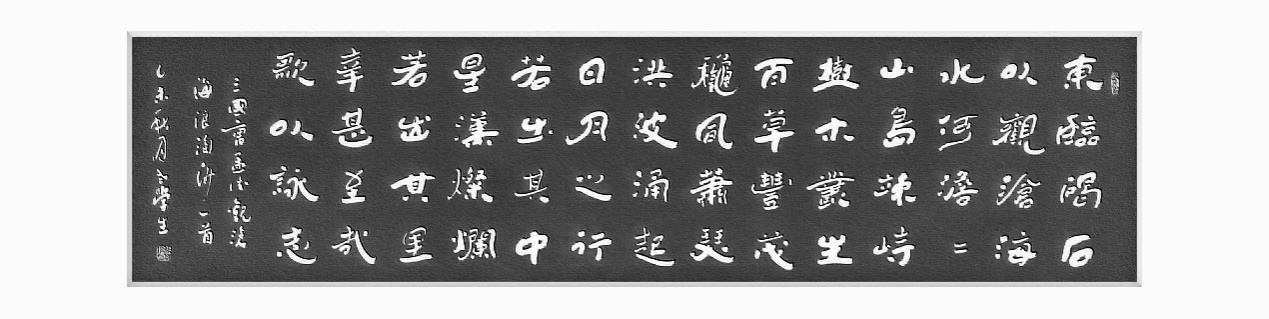 東臨碣石
以觀滄海
水何澹二
山島竦峙
樹木叢生
百草豐茂
龝風蕭瑟
洪波涌起
日月之行
若出其中
星漢燦爛
若出其里
幸甚至哉
歌以詠志
三國曹孟德觀滄
海浪淘沙一首
乙未秋月學生